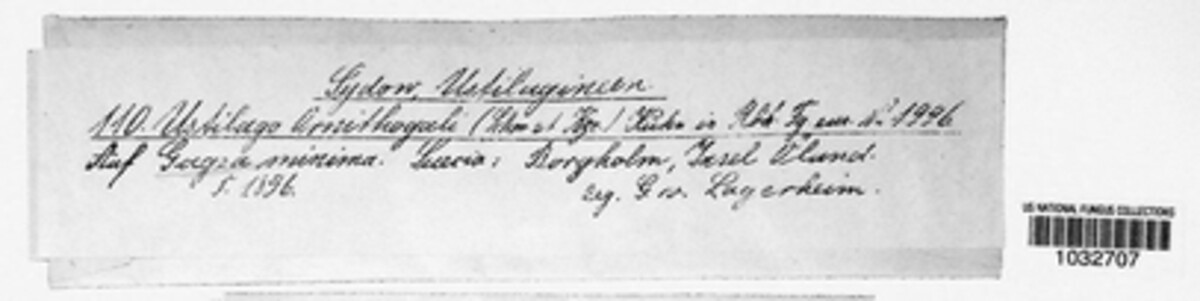 Sydow, Ustilagineen
110. Ustilago Ornithogali (Schm et Kze.) Kühn in Rbh Fg eur. No 1996
Auf Gagea minima. Suecia: Borgholm, Insel Öland.
5. 1896.
leg. G v. Lagerheim.
US NATIONAL FUNGUS COLLECTIONS
1032707